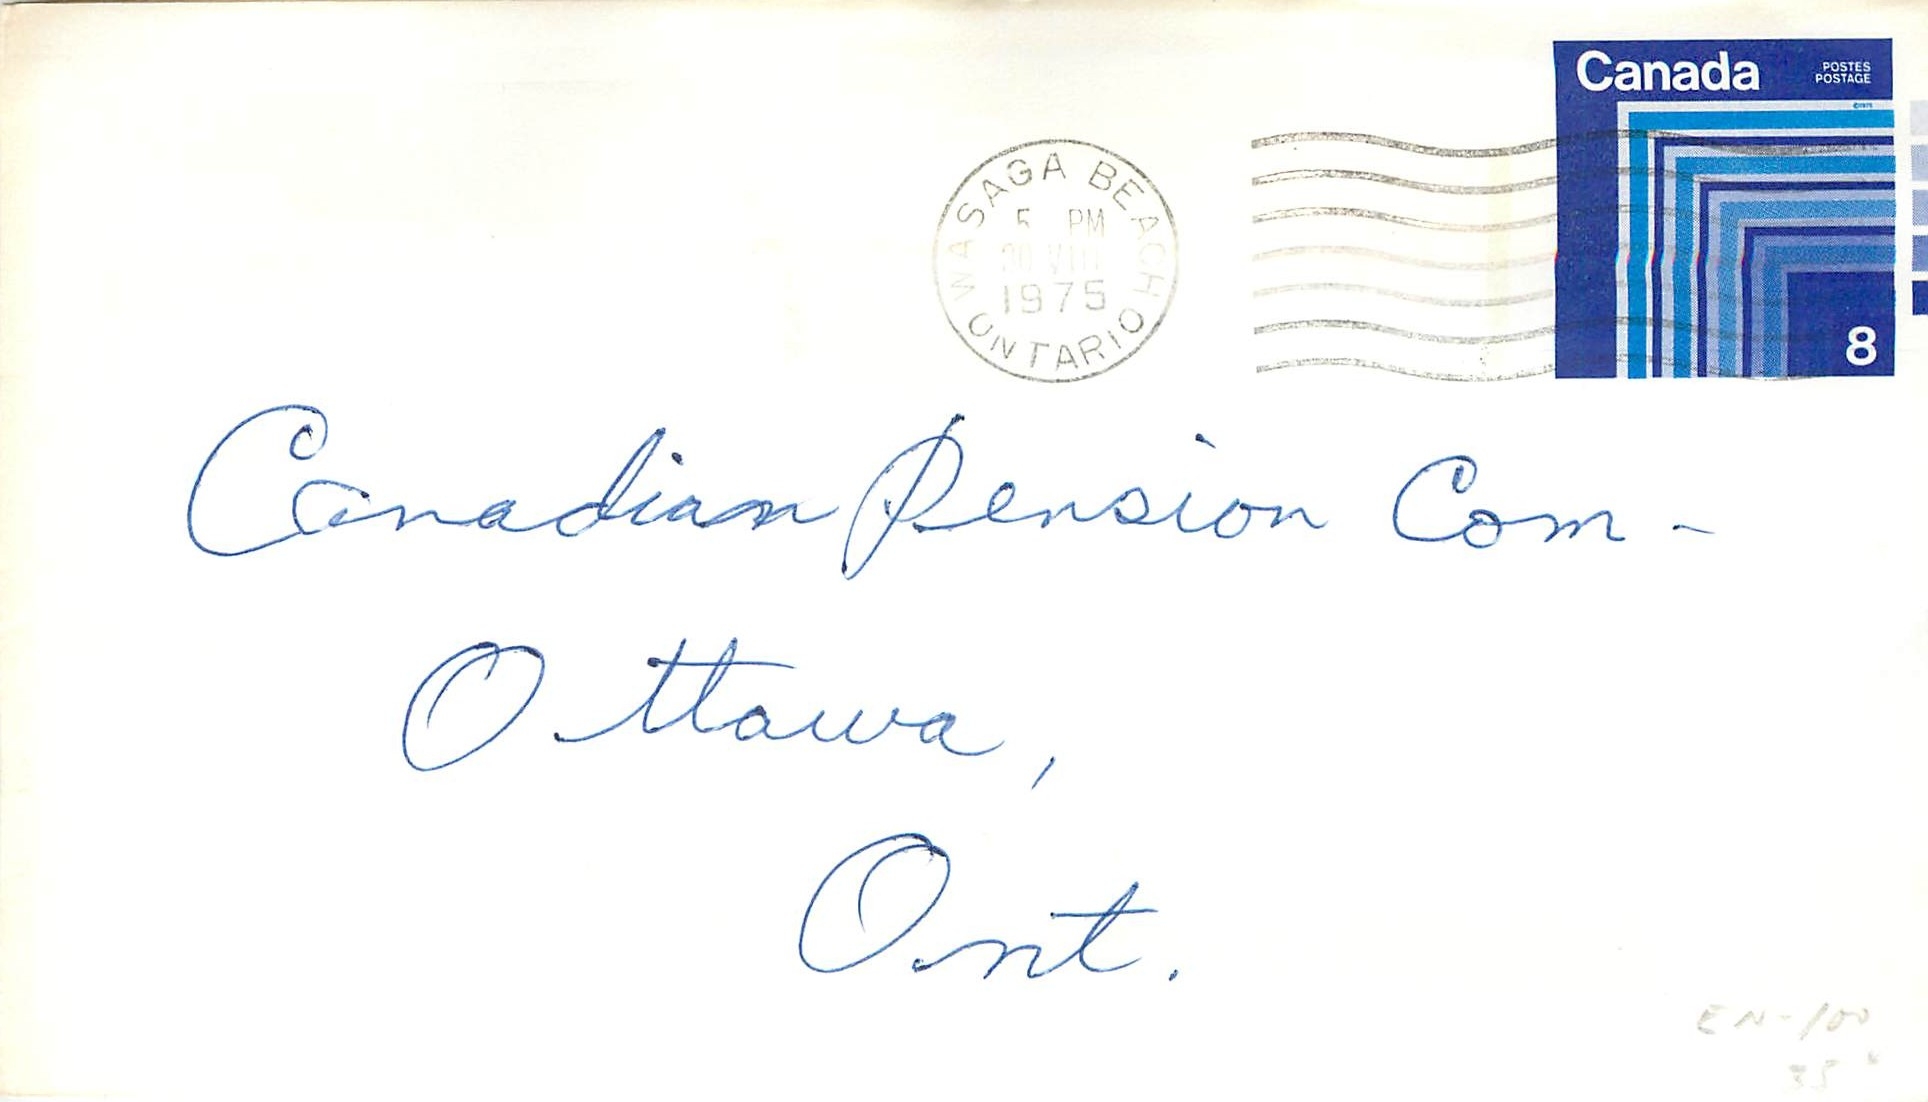 Canada
POSTES
POSTAGE
©1975
8
WASAGA BEACH
5 PM
30 VIII
1975
ONTARIO
Canadian Pension Com-
Ottawa,
Ont.
EN-100
35